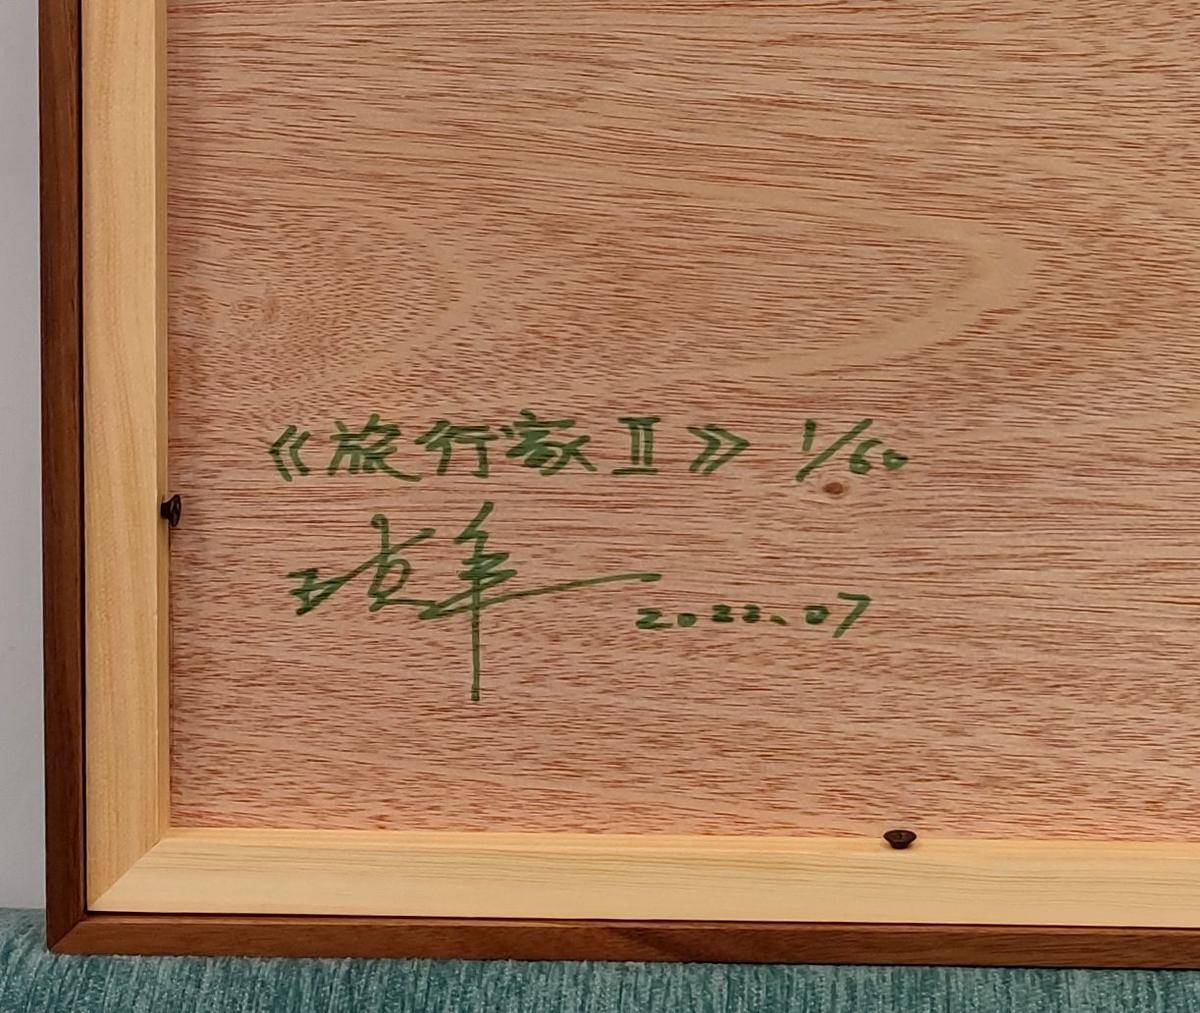 《旅行家Ⅱ》 1/60
2022.07